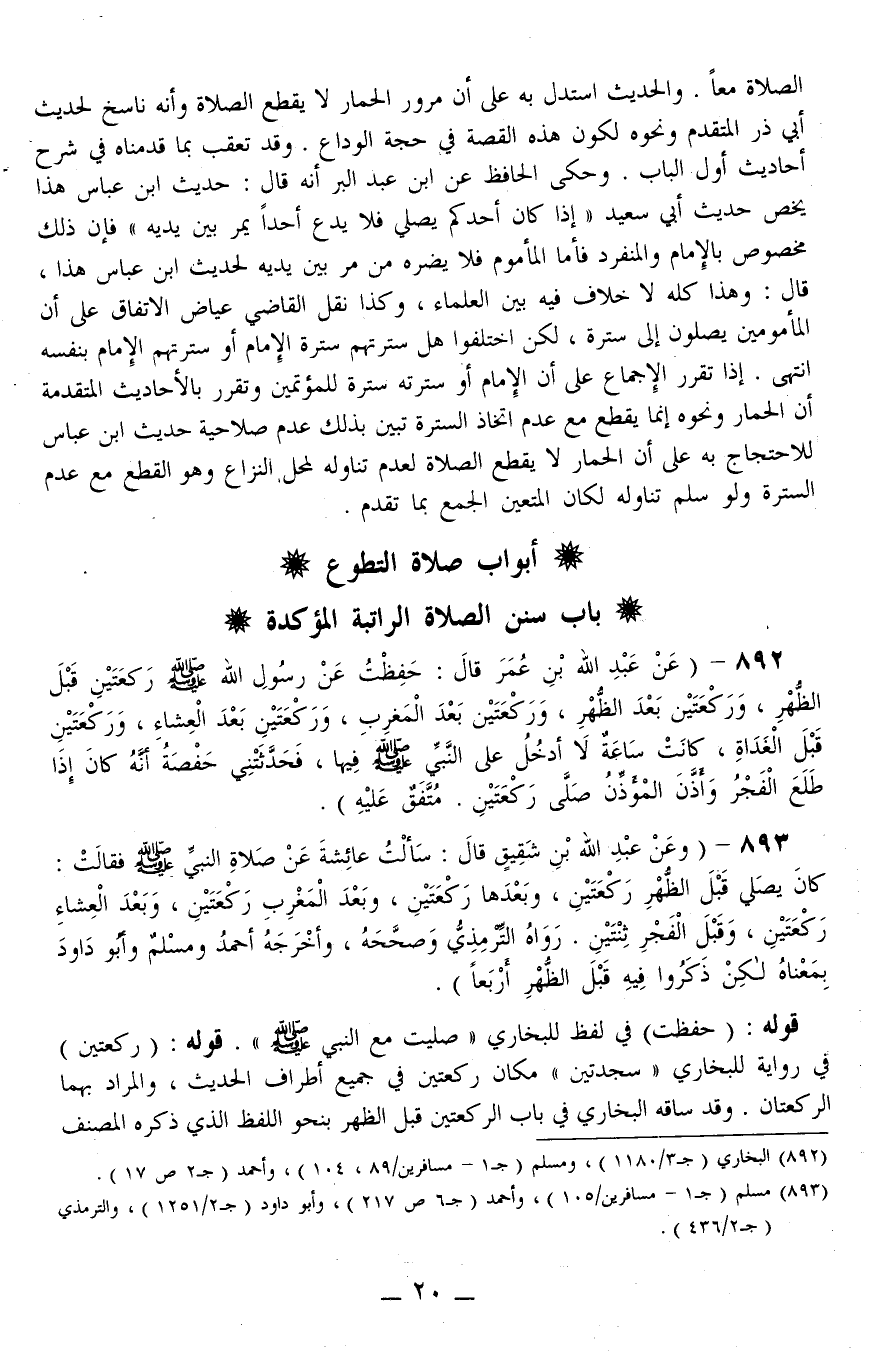 الصلاة معاً . والحديث استدل به على أن مرور الحمار لا يقطع الصلاة وأنه ناسخ لحديث
أبي ذر المتقدم ونحوه لكون هذه القصة في حجة الوداع . وقد تعقب بما قدمناه في شرح
أحاديث أول الباب . وحكى الحافظ عن ابن عبد البر أنه قال : حديث ابن عباس هذا
يخص حديث أبي سعيد « إذا كان أحدكم يصلي فلا يدع أحداً يمر بين يديه » فإن ذلك
مخصوص بالإِمام والمنفرد فأما المأموم فلا يضره من مر بين يديه لحديث ابن عباس هذا ،
قال : وهذا كله لا خلاف فيه بين العلماء ، وكذا نقل القاضي عياض الاتفاق على أن
المأمومين يصلون إلى سترة ، لكن اختلفوا هل سترتهم سترة الإِمام أو سترتهم الإِمام بنفسه
انتهى . إذا تقرر الإِجماع على أن الإِمام أو سترته سترة للمؤتمين وتقرر بالأحاديث المتقدمة
أن الحمار ونحوه إنما يقطع مع عدم اتخاذ السترة تبين بذلك عدم صلاحية حديث ابن عباس
للاحتجاج به على أن الحمار لا يقطع الصلاة لعدم تناوله لمحل النزاع وهو القطع مع عدم
السترة ولو سلم تناوله لكان المتعين الجمع بما تقدم .
أبواب صلاة التطوع
باب سنن الصلاة الراتبة المؤكدة
٨٩٢ – ( عَنْ عَبْدِ الله بْنِ عُمَرَ قالَ : حَفِظْتُ عَنْ رسُولِ الله ﷺ رَكعَتَيْنِ قَبْلَ
الظُّهْرِ ، وَرَكْعَتَيْن بَعْدَ الظُّهْرِ ، وَرَكْعَتَيْنِ بَعْدَ الْمَغرِبِ ، وَرَكْعَتَيْنِ بَعْدَ الْعِشاءِ ، وَرَكْعَتَيْنِ
قَبْلَ الْغَدَاةِ ، كانَتْ سَاعَةٌ لَا أدخُلُ على النَّبيِّ ﷺ فِيها ، فَحَدَّثَتْنِي حَفْصَةُ أنَّهُ كانَ إِذَا
طَلَعَ الْفَجْرُ وَأَذَّنَ المُؤَذِّنُ صَلَّى رَكْعَتَيْنِ . مُتَّفَقٌ عَلَيْهِ ) .
٨٩٣ – ( وعَنْ عبْدِ الله بْنِ شَقِيقٍ قالَ : سَألْتُ عائِشةَ عَنْ صَلاةِ النبيِّ ﷺ فقالَتْ :
كانَ يصَلي قَبْلَ الظُّهْرِ رَكْعَتَيْنِ ، وبَعْدَها رَكْعَتَيْنِ ، وبَعْدَ الْمَغْرِبِ رَكْعَتَيْنِ ، وَبَعْدَ الْعِشاءِ
رَكْعَتَيْنِ ، وَقَبْلَ الْفَجْرِ ثِنْتَيْنِ . رَوَاهُ التِّرْمِذِيُّ وَصَحَّحَهُ ، وأخْرَجَهُ أحمدُ ومسْلمٌ وأبُو دَاودَ
بِمَعْناهُ لـٰكِنْ ذَكَرُوا فِيهِ قَبْلَ الظُّهْرِ أَرْبَعاً ) .
قوله : ( حفظت) في لفظ للبخاري « صليت مع النبي ﷺ » . قوله : ( ركعتين )
في رواية للبخاري « سجدتين » مكان ركعتين في جميع أطراف الحديث ، والمراد بهما
الركعتان . وقد ساقه البخاري في باب الركعتين قبل الظهر بنحو اللفظ الذي ذكره المصنف
(٨٩٢) البخاري ( جـ٣/١١٨٠ ) ، ومسلم ( جـ١ – مسافرين/٨٩ ، ١٠٤ ) ، وأحمد ( جـ٢ ص ١٧ ) .
(٨٩٣) مسلم ( جـ١ – مسافرين/١٠٥ ) ، وأحمد ( جـ٦ ص ٢١٧ ) ، وأبو داود ( جـ٢/١٢٥١ ) ، والترمذي
( جـ٢/٤٣٦ ) .
ــ ٢٠ ــ